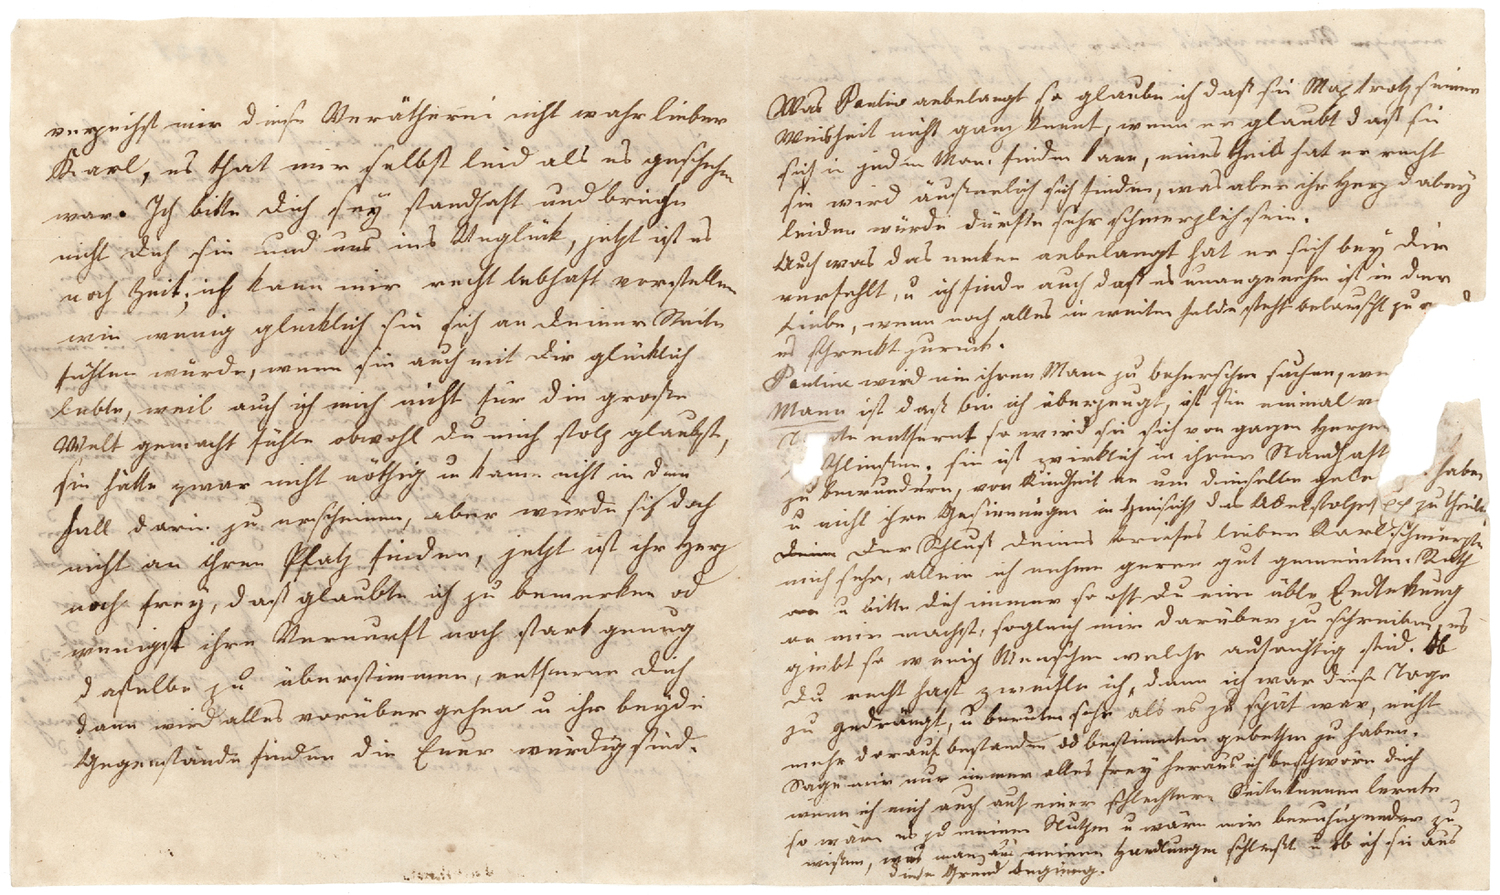 verzeihst mir diese Verätherei nicht wahr lieber
Karl, es that mir selbst leid als es geschehen
war. Ich bitte Dich sey standhaft und bringe
nicht Dich sie und uns ins Unglück, jetzt ist es
noch Zeit, ich kann mir recht lebhaft vorstellen
wie wenig glücklich sie sich an Deiner Seite
fühlen würde, wenn sie auch mit Dir glücklich
lebte, weil auch ich mich nicht für die große
Welt gemacht fühle obwohl Du mich stolz glaubst,
sie hätte zwar nicht nöthig u kann nicht in dem
Fall darin zu erscheinen, aber würde sich doch
nicht an ihren Platz finden, jetzt ist ihr Herz
noch frey, daß glaubte ich zu bemerken od
wenigst ihre Vernunft noch stark genug
daselbe zu überstimmen, entferne Dich
dann wird alles vorüber gehen u ihr beyde
Gegenstände finden die Euer würdig sind.
Was Paulin anbelangt so glaube ich daß sie Max trotz seiner
Weisheit nicht ganz kennt, wenn er glaubt daß sie
sich in jeden Man finden kann, eines theils hat er recht
sie wird äußerlich sich finden, was aber ihr Herz dabey
leiden würde dürfte sehr schmerzlich sein.
Auch was das necken anbelangt hat er sich bey Dir
verfehlt, u ich finde auch daß es unangenehm ist in der
Liebe, wenn noch alles im weiten Felde steht belauscht zu
es schreckt zurück.
Pauline wird nie ihren Mann zu beherschen suchen,
Mann ist daß bin ich überzeugt, ist sie einmal
entfernt so wird sie sich von ganzen Herzen
schließen. sie ist wirklich in ihrer Standhaft
zu bewundern, von Kindheit an um dieselbe haben
u nicht ihre Gesinnungen in Hinsicht des Adelstolzes zu theilen
Der Schluß Deines Briefes lieber Karl schmerzte
mich sehr, allein ich nehme gerne gut gemeinten Rath
an u bitte Dich immer so oft Du eine üble Endtekung
an mir machst, sogleich mir darüber zu schreiben, es
giebt so wenig Menschen welche aufrichtig sind. Ob
Du recht hast zweifle ich, denn ich war diese Tage
zu gedrängt, u bereute sehr als es zu spät war, nicht
mehr darauf bestanden od bestimmter gebethen zu haben.
Sage mir nur immer alles frey heraus ich beschwöre Dich
wenn ich mich auch auf einer schlechtern Seite kennen lernte
so wäre es zu meinem Nutzen u wäre mir beruhigender zu
wißen, was man aus meinen Handlungen schließt u ob ich sie aus
diesen Grund beginng.